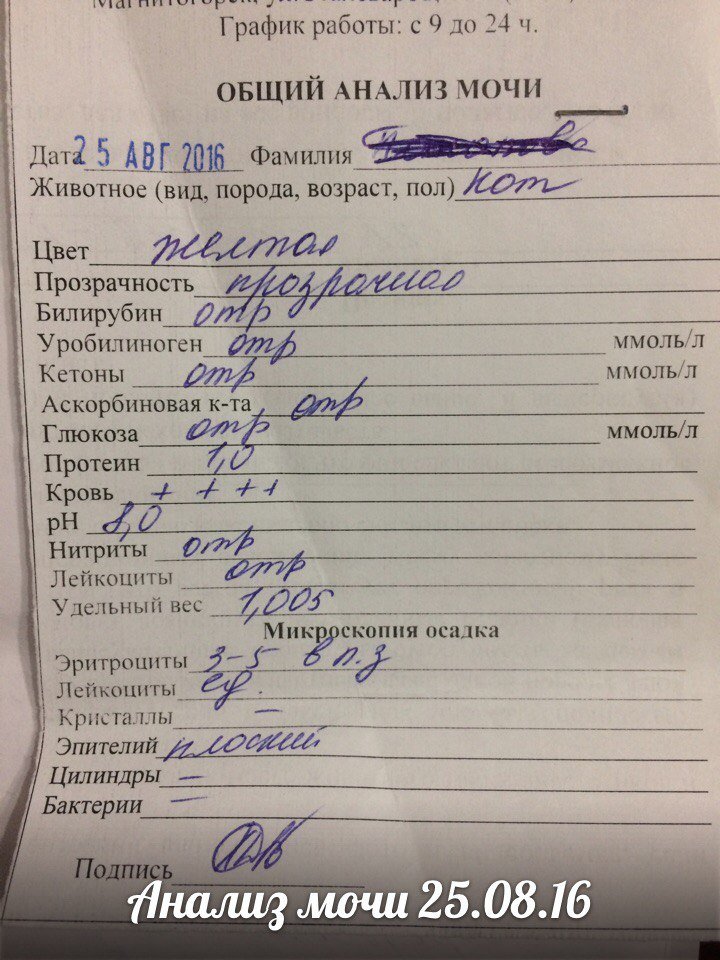 Магнитогорск, ул.
График работы: с 9 до 24 ч.
ОБЩИЙ АНАЛИЗ МОЧИ
Дата 25 АВГ 2016 Фамилия
Животное (вид, порода, возраст, пол) кот
Цвет желтая
Прозрачность прозрачная
Билирубин отр
Уробилиноген отр ммоль/л
Кетоны отр ммоль/л
Аскорбиновая к-та отр
Глюкоза отр ммоль/л
Протеин 1,0
Кровь + + + +
pH 8,0
Нитриты отр
Лейкоциты отр
Удельный вес 1,005
Микроскопия осадка
Эритроциты 3-5 в п.з
Лейкоциты ед.
Кристаллы –
Эпителий плоский
Цилиндры –
Бактерии –
Подпись
Анализ мочи 25.08.16